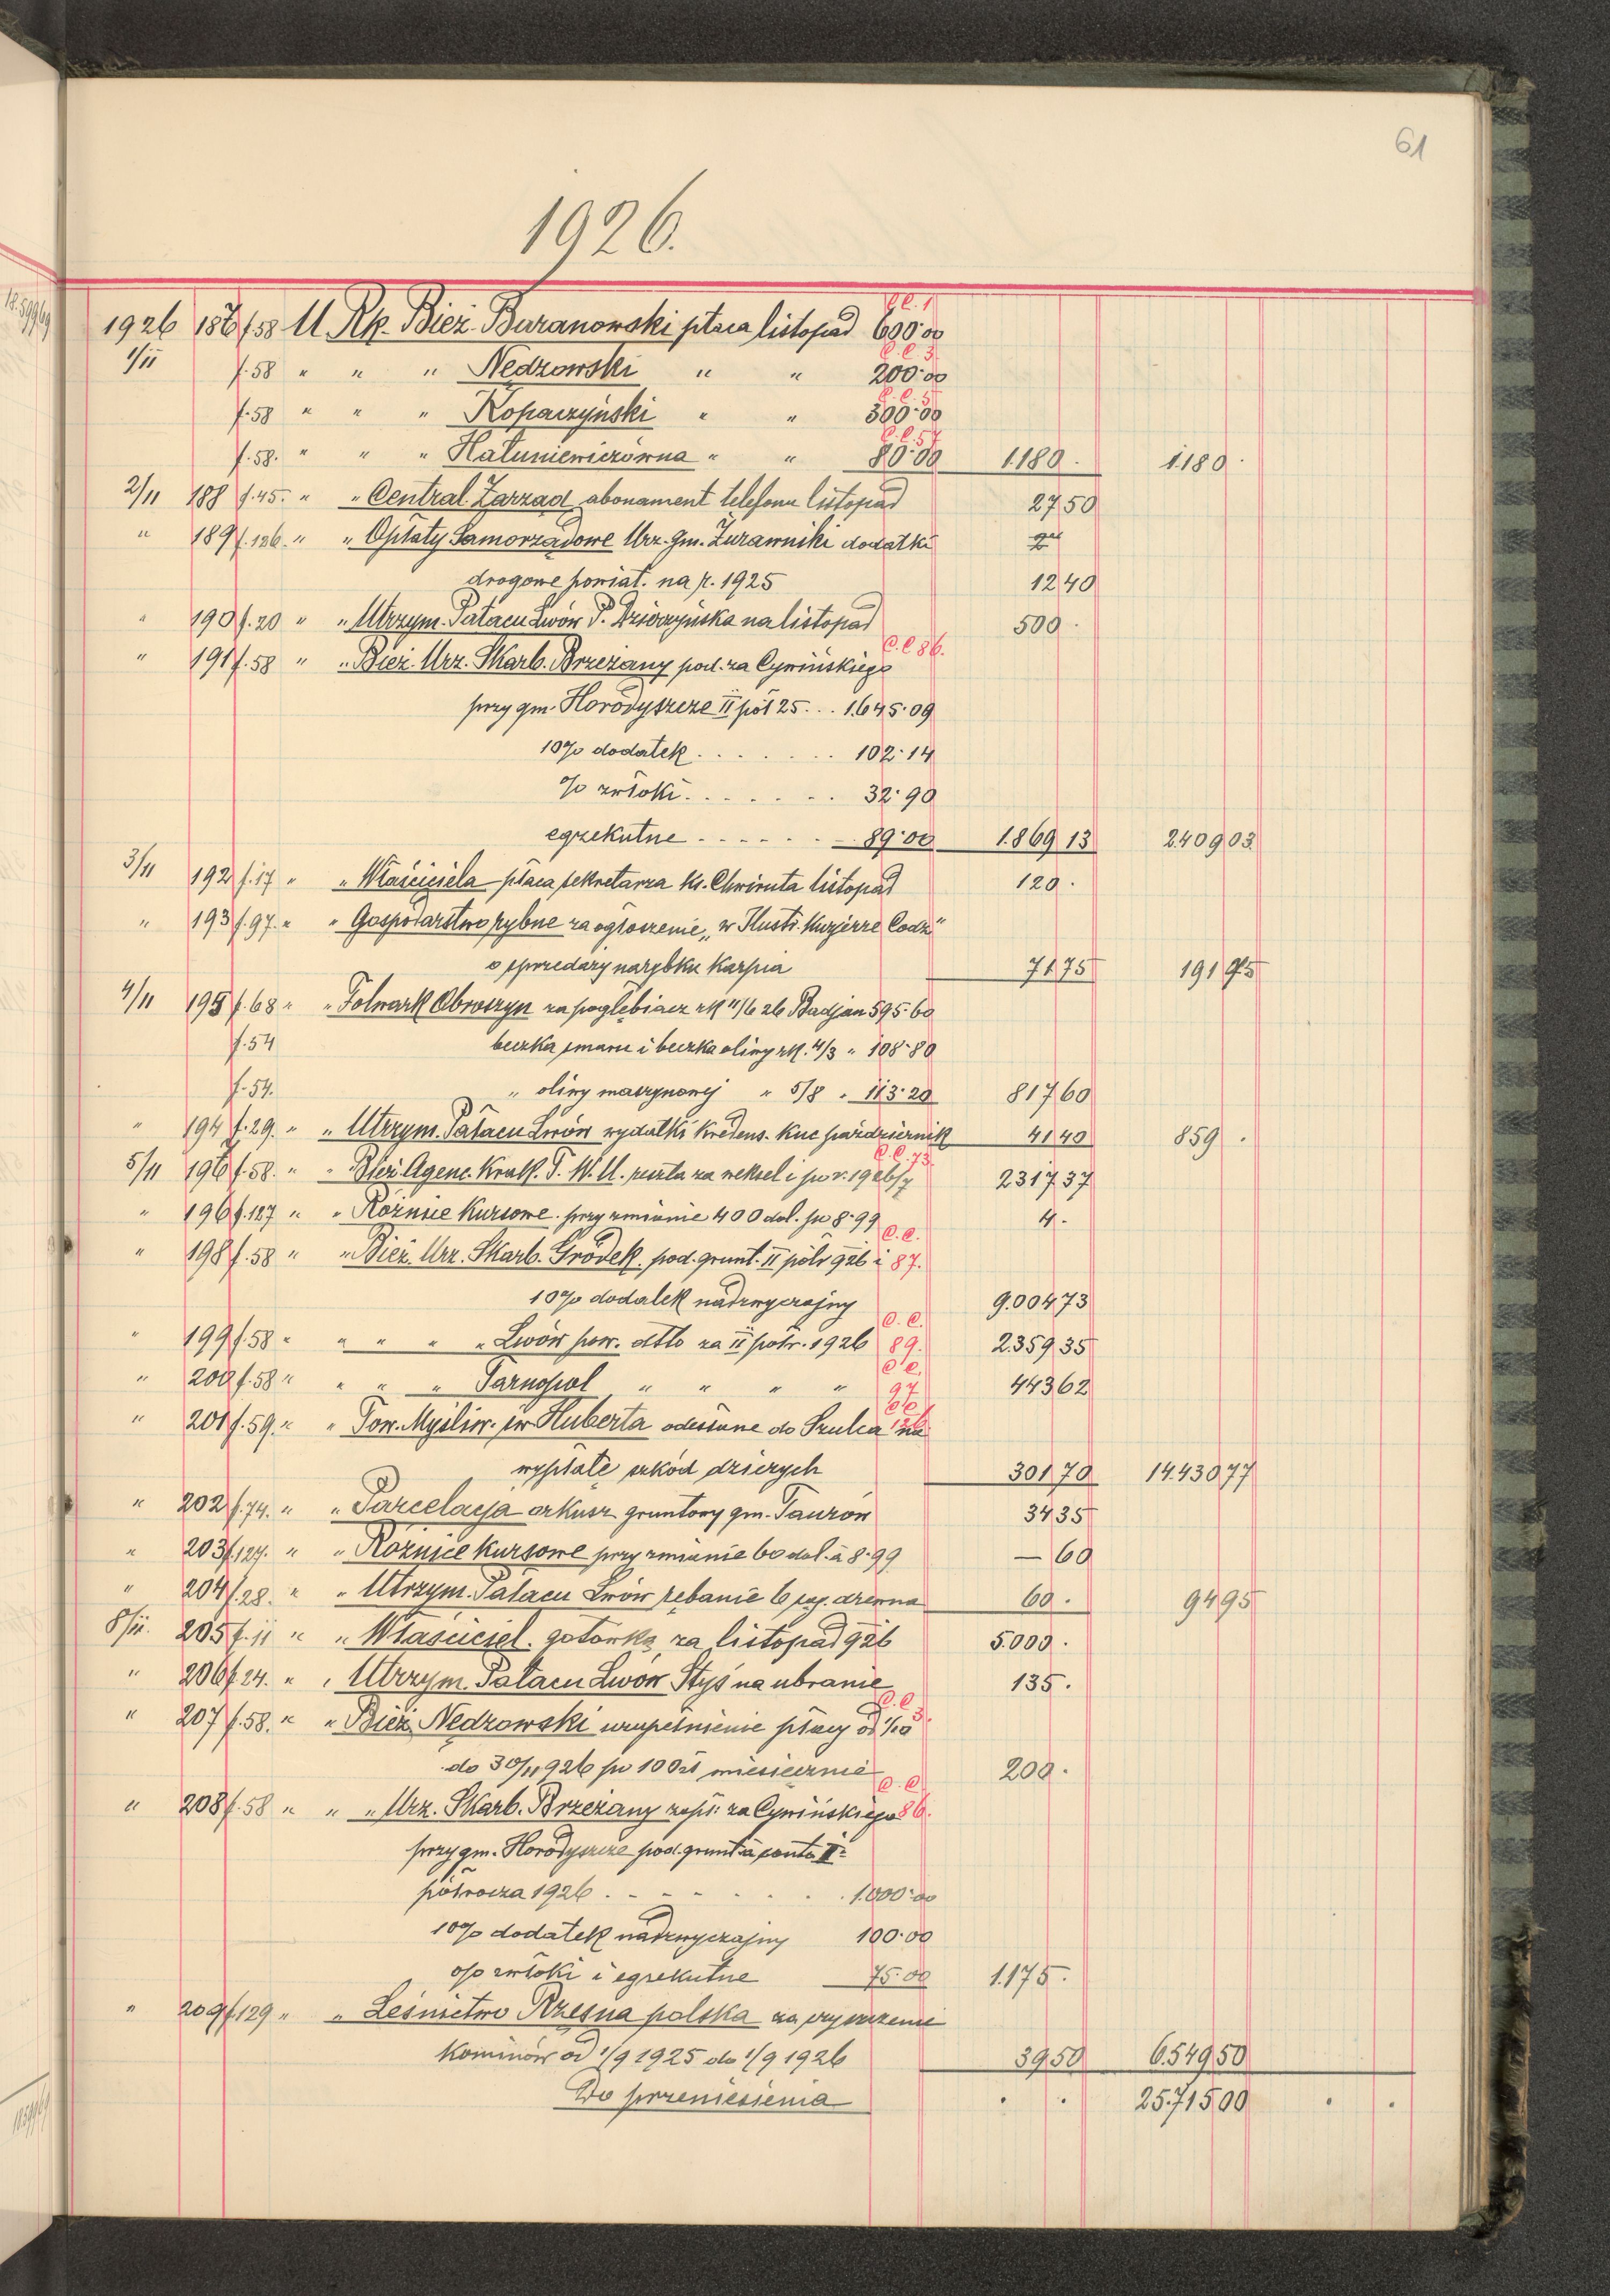 61
1926.
1926 186 f.58 U Rk. Bież. Baranowski płaca listopad 600·00 C.C. 1
1/11 f.58 " " " Nedzowski " " 200·00 C.C. 3.
f.58 " " " Kopaczyński " " 300·00 C.C. 5
f.58. " " " Hatuniewiczówna " " 80·00 C.C. 57 1.180 · 1.180 ·
2/11 188 f.45. " " Central. Zarząd abonament telefonu listopad 27 50
" 189 f.126. " " Opłaty Samorządowe Urz. gm. Żurawniki dodatki
drogowe powiat. na r. 1925 12 40
" 190 f.20 " " Utrzym. Pałacu Lwów P. Dzierżyńska na listopad 500 ·
" 191 f.58 " " Bież. Urz. Skarb. Brzeżany pod. za Cywińskiego C.C 86.
przy gm. Horodyszcze II pół 25 . . . 1.645·09
10% dodatek . . . . . . . 102·14
% zwłoki . . . . . . . 32·90
egzekutne . . . . . . 89·00 1.869 13 2.409 03
3/11 192 f.17 " " Właściciela płaca sekretarza Ks. Chwiruta listopad 120 ·
" 193 f.97. " " Gospodarstwo rybne za ogłoszenie „w Ilustr. Kurjerze Codz"
o sprzedaży narybku Karpia 71 75 191 75
4/11 195 f.68 " " Folwark Obroszyn za pogłębiacz rk 11/6 26 Badjan 595·60
f.54 beczka smaru i beczka oliwy rk. 4/3 " 108·80
f.54. " oliwy maszynowej " 5/8 " 113·20 817 60
" 194 f.29. " " Utrzym. Pałacu Lwów wydatki kredens. Kuc październik 41 40 859 ·
5/11 196 f.58. " " Bież. Agenc. Krak. T. W. U. reszta za weksel i po r. 1926/7 C.C. 73. 2317 37
" 196 f.127 " " Różnice Kursowe przy zmianie 400 dol. po 8·99 4 ·
" 198 f.58 " " Bież. Urz. Skarb. Gródek pod. grunt. II półr 926 i C.C. 87.
10% dodatek nadzwyczajny 9.004 73
" 199 f.58 " " " " " Lwów pow. dtto za II półr. 1926 C.C. 89. 2.359 35
" 200 f.58 " " " " Tarnopol " " " " C.C. 97 443 62
" 201 f.59. " " Tow. Myśliw. św. Huberta odesłane do Szulca na
wypłatę szkód dziczych 301 70 14.430 77
" 202 f.74. " " Parcelacja arkusz gruntowy gm. Taurów 34 35
" 203 f.127. " " Różnice Kursowe przy zmianie 60 dol. à 8·99 — 60
" 204 f.28. " " Utrzym. Pałacu Lwów rębanie 6 sąg. drewna 60 · 94 95
8/11. 205 f.11 " " Właściciel. gotówką za listopad 926 5.000 ·
" 206 f.24. " " Utrzym. Pałacu Lwów Styś na ubranie 135 ·
" 207 f.58. " " Bież. Nedzowski uzupełnienie płacy od 1/10 C.C 3.
do 30/11 926 po 100 zł miesięcznie 200 ·
" 208 f.58 " " " Urz. Skarb. Brzeżany zapł. za Cywińskiego C.C. 86.
przy gm. Horodyszcze pod. grunt à conto II-
półrocza 1926 . . . . . . . 1.000·00
10% dodatek nadzwyczajny 100·00
o/o zwłoki i egzekutne 75·00 1.175 ·
" 209 f.129 " " Leśnictwo Rzęsna polska za czyszczenie
kominów od 1/9 1925 do 1/9 1926 39 50 6.549 50
Do przeniesienia · · 25.715 00 · ·